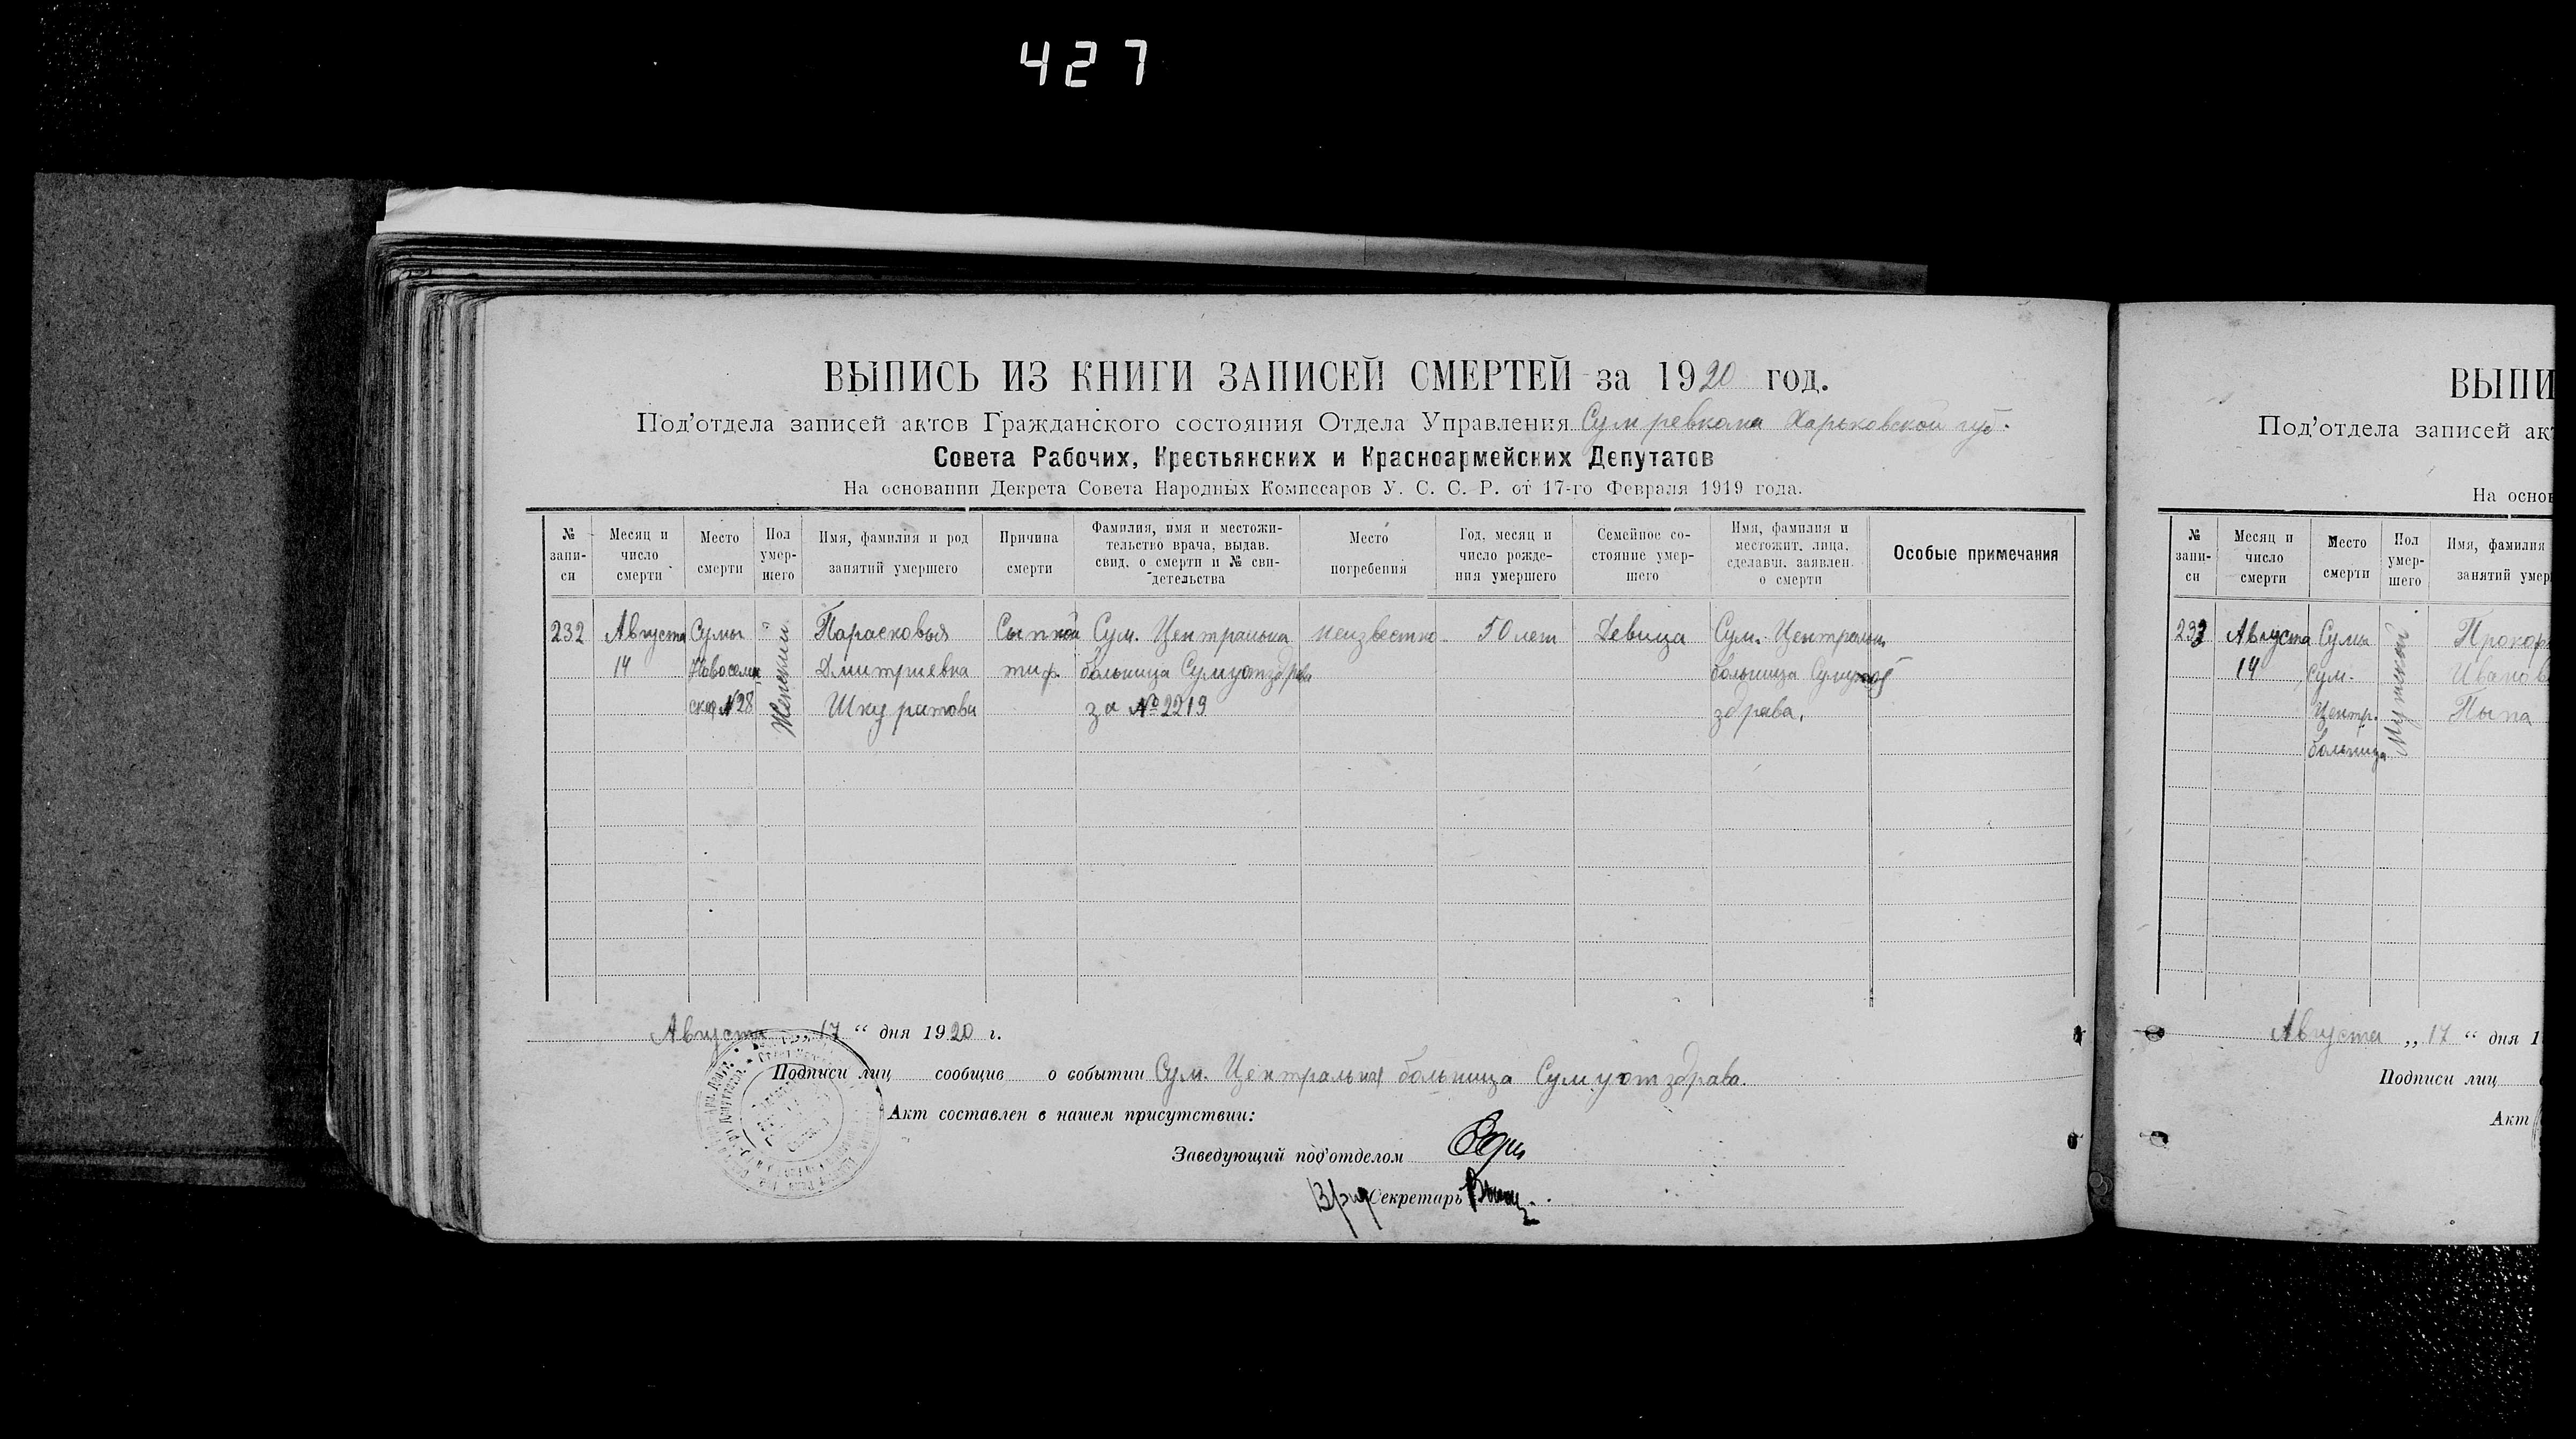 427
ВЫПИСЬ ИЗ КНИГИ ЗАПИСЕЙ СМЕРТЕЙ за 1920 год.
Под'отдела записей актов Гражданского состояния Отдела Управления Сумревкома Харьковской губ.
Совета Рабочих, Крестьянских и Красноармейских Депутатов
На основании Декрета Совета Народных Комиссаров У. С. С. Р. от 17-го Февраля 1919 года.
№ записи
Месяц и число смерти
Место смерти
Пол умершего
Имя, фамилия и род занятий умершего
Причина смерти
Фамилия, имя и местожительство врача, выдав. свид. о смерти и № свидетельства
Место погребения
Год, месяц и число рождения умершего
Семейное состояние умершего
Имя, фамилия и местожит. лица, сделавш. заявлен. о смерти
Особые примечания
232
Августа
14
Сумы
№28
Женский
Парасковья
Дмитриевна
Шкуратова
Сыпной
тиф.
Сум. Центральна
больница Сумуотздрава
за № 2219
неизвестно
50 лет
Девица
Сум. Центральн.
больница
здрава.
Августа „17“ дня 1920 г.
Подписи лиц сообщив о событии Сум. Центральная больница Сумуотздрава.
Акт составлен в нашем присутствии:
Заведующий под'отделом
Врид Секретарь
ВЫПИ
Под'отдела записей ак
На основ
№ записи
Месяц и число смерти
Место смерти
Пол умершего
Имя, фамилия
занятий умер
233
Августа
14
Сумы
Сум.
Центр.
больница
Мужской
Прокоф
Иванов
Пыпа
Августа „17“ дня 1
Подписи лиц
Акт